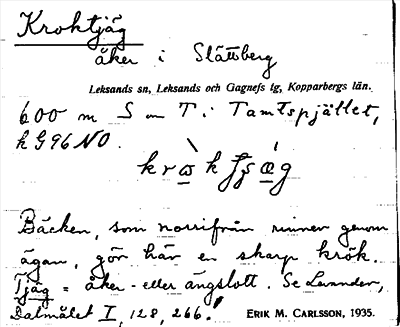 Krohtjäg
åker i Slättberg
Leksands sn, Leksands och Gagnefs tg, Kopparbergs län.
600 m S om T i Tamtspjället,
k G96 NO.
Bäcken, som norrifrån rinner genom
ägan, gör här en skarp krök.
Tjäg = åker- eller ängslott. Se Levander,
Dalmålet I, 128, 266.
ERIK M. CARLSSON, 1935.